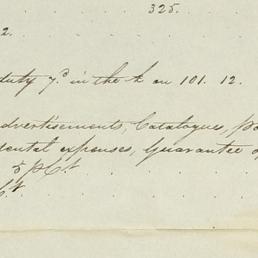 325.
2.
duty 7.d in the £ on 101. 12.
Advertisements, Catalogues,
dental expenses, Guarantee
5 pCt.